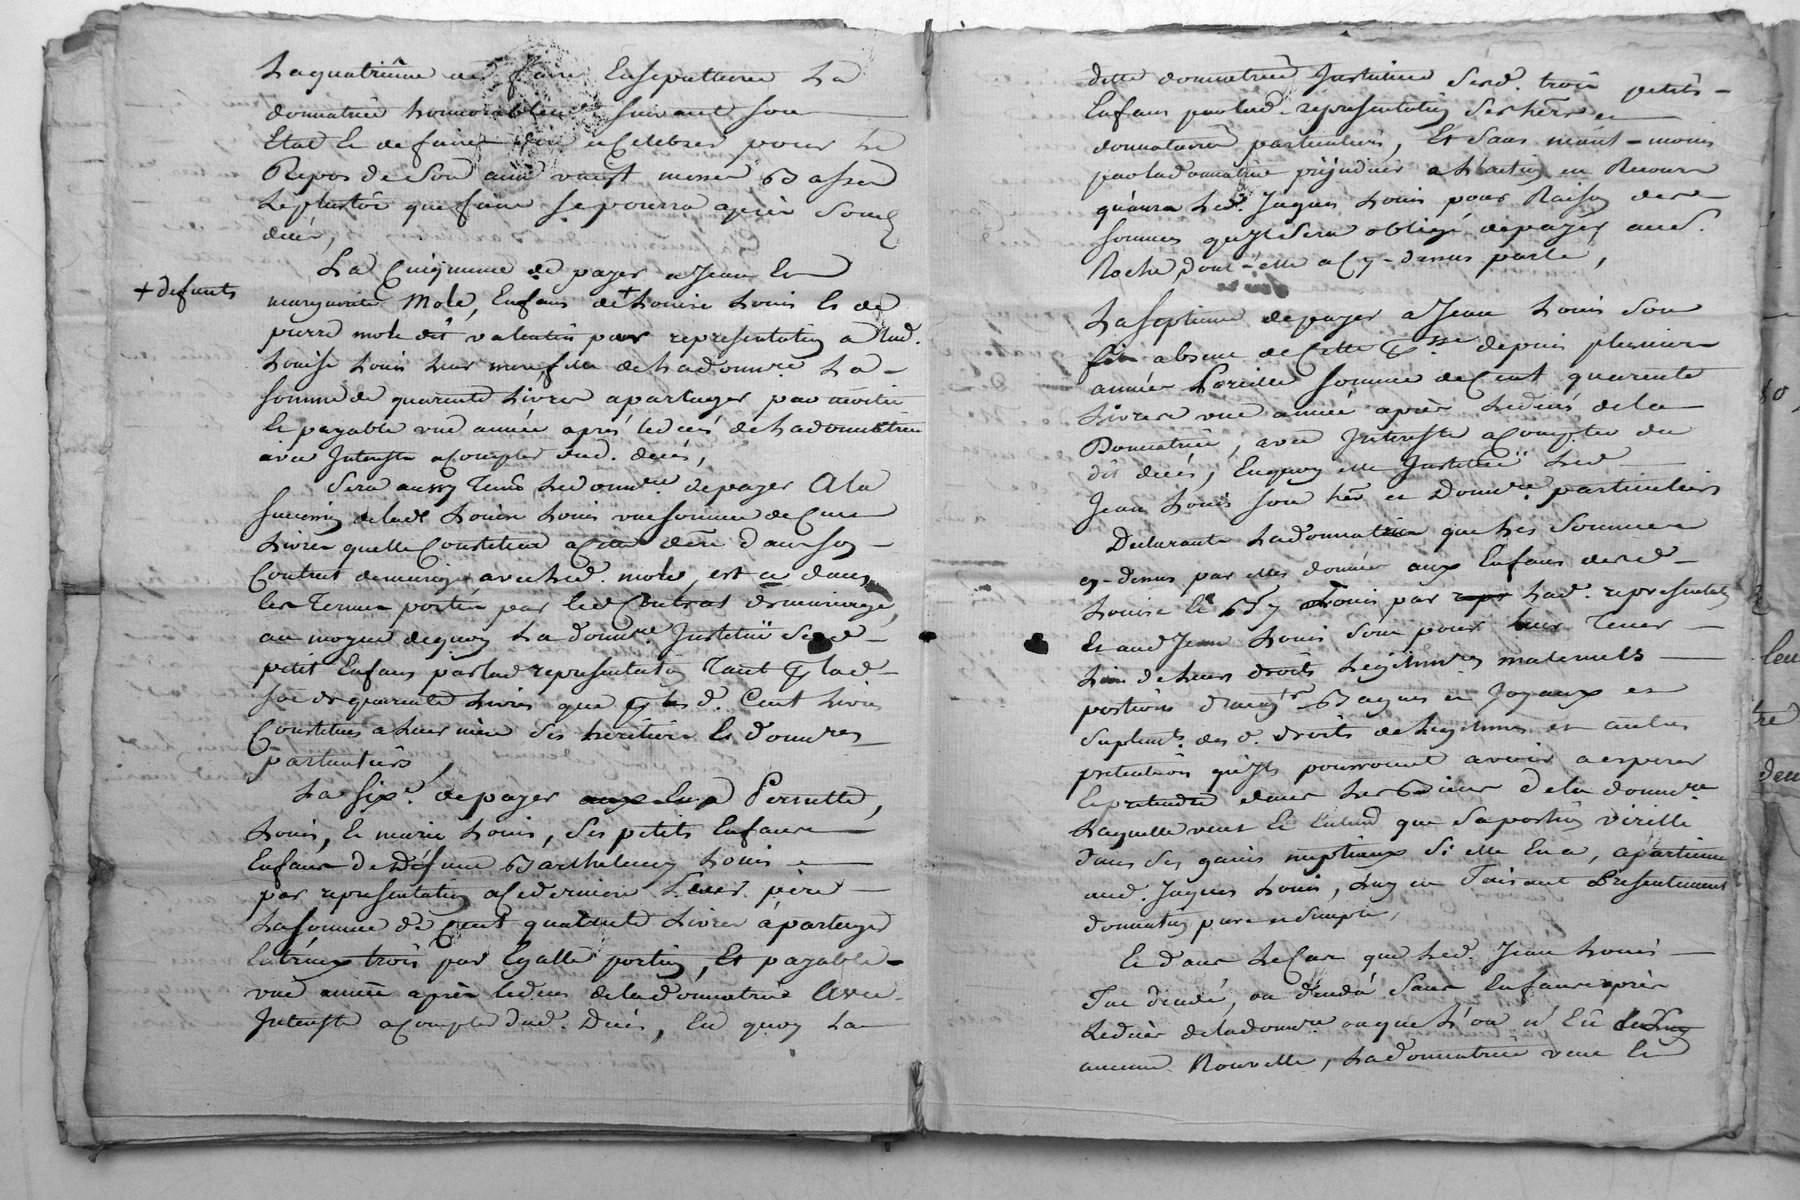 La quatrieme de faire Ensepulturer La
donnatrice honnorablement suivant son
Etat Et de faire dire et Celebrer pour Le
Repos de Son ame vingt messes Basses
Le plustôt que faire se pourra après Son
décés,
La Cinquieme de payer a Jean Et
+ defunts
marguerite Mole, Enfans de + Louise Louis Et de
pierre mole dit valentin par representation a lad.
Louise Louis Leur mere fille de La donnre. La
somme de quarente Livres a partager par moitié
Et payable une année après le décés de La donnatrice
avec Interets a Compter dud. décés,
Sera aussy Tenu Led. donnre. de payer A la
succession de lad. Louise Louis une somme de Cent
Livres quelle Constitua a Cette derre. dans son
Contrat de mariage avec Led. mole, est ce dans
les Termes portés par led. Contrat de mariage,
au moyen de quoy La donnre. Institue Sesd.
petit Enfans par lad. representation Tant pr. lad.
soe. de quarente Livres que pr. les d. Cent Livres
Constitués a Leur mère Ses héritiers Et donnres.
particuliers
La Sixe. de payer aux Enf Pernette,
Louis, Et marie Louis, Ses petits Enfans
Enfans de Défunt Barthelemy Louis
par representation a Ce dernier Leur père
La somme de Cent quarante Livres à partager
Entr'eux trois par Egalle portion, Et payable
une année après le décés de la donnatrice Avec
Interets a Compter dud. Décés, En quoy La
ditte donnatrice Institue Sesd. trois petits
Enfans par lad. representation Ses hers. et
donnataires particuliers, Et Sans néant-moins
par la donnatrice préjudicier a L'action en Recours
qu'aura Led. Jaques Louis pour Raison des
sommes qu'il Sera obligé de payer aud.
Roche, dont-elle a Cy-dessus parlé,
La Septieme de payer a Jean Louis Son
fils absent de Cette pce. depuis plusieurs
années Pareille somme de Cent quarente
Livres une année après Le décés de la
Donnatrice, avec Interets a Compter du
dit décés, En quoy elle Institue Led.
Jean Louis Son her. et Donnre. particuliers
Declarante La donnatrice que Les Sommes
cy-dessus par elle données aux Enfans desd.
Louise Et By Louis par repr Lad. representation
Et aud. Jean Louis Sont pour leur Tenir
Lieu de Leurs droits Legitimes maternels
portions d'augt. Bagues et Joyaux et
Suplemts. des d. droits de Legitimes et autres
prétentions qu'ils pourroient avoir a esperer
Et prétendre dans Les Biens de la donnre.
Laquelle veut Et Entend que Sa portion virille
dans Ses gains nuptiaux Si elle En a, apartienne
aud. Jaques Louis, Luy en faisant Présentement
donnation pure et Simple,
Et dans Le Cas que Led. Jean Louis
fut décédé, ou décéda Sans Enfans après
Le décés de la donnre. ou que L'on n'Eu de Luy
aucune Nouvelle, La donnatrice veut Et